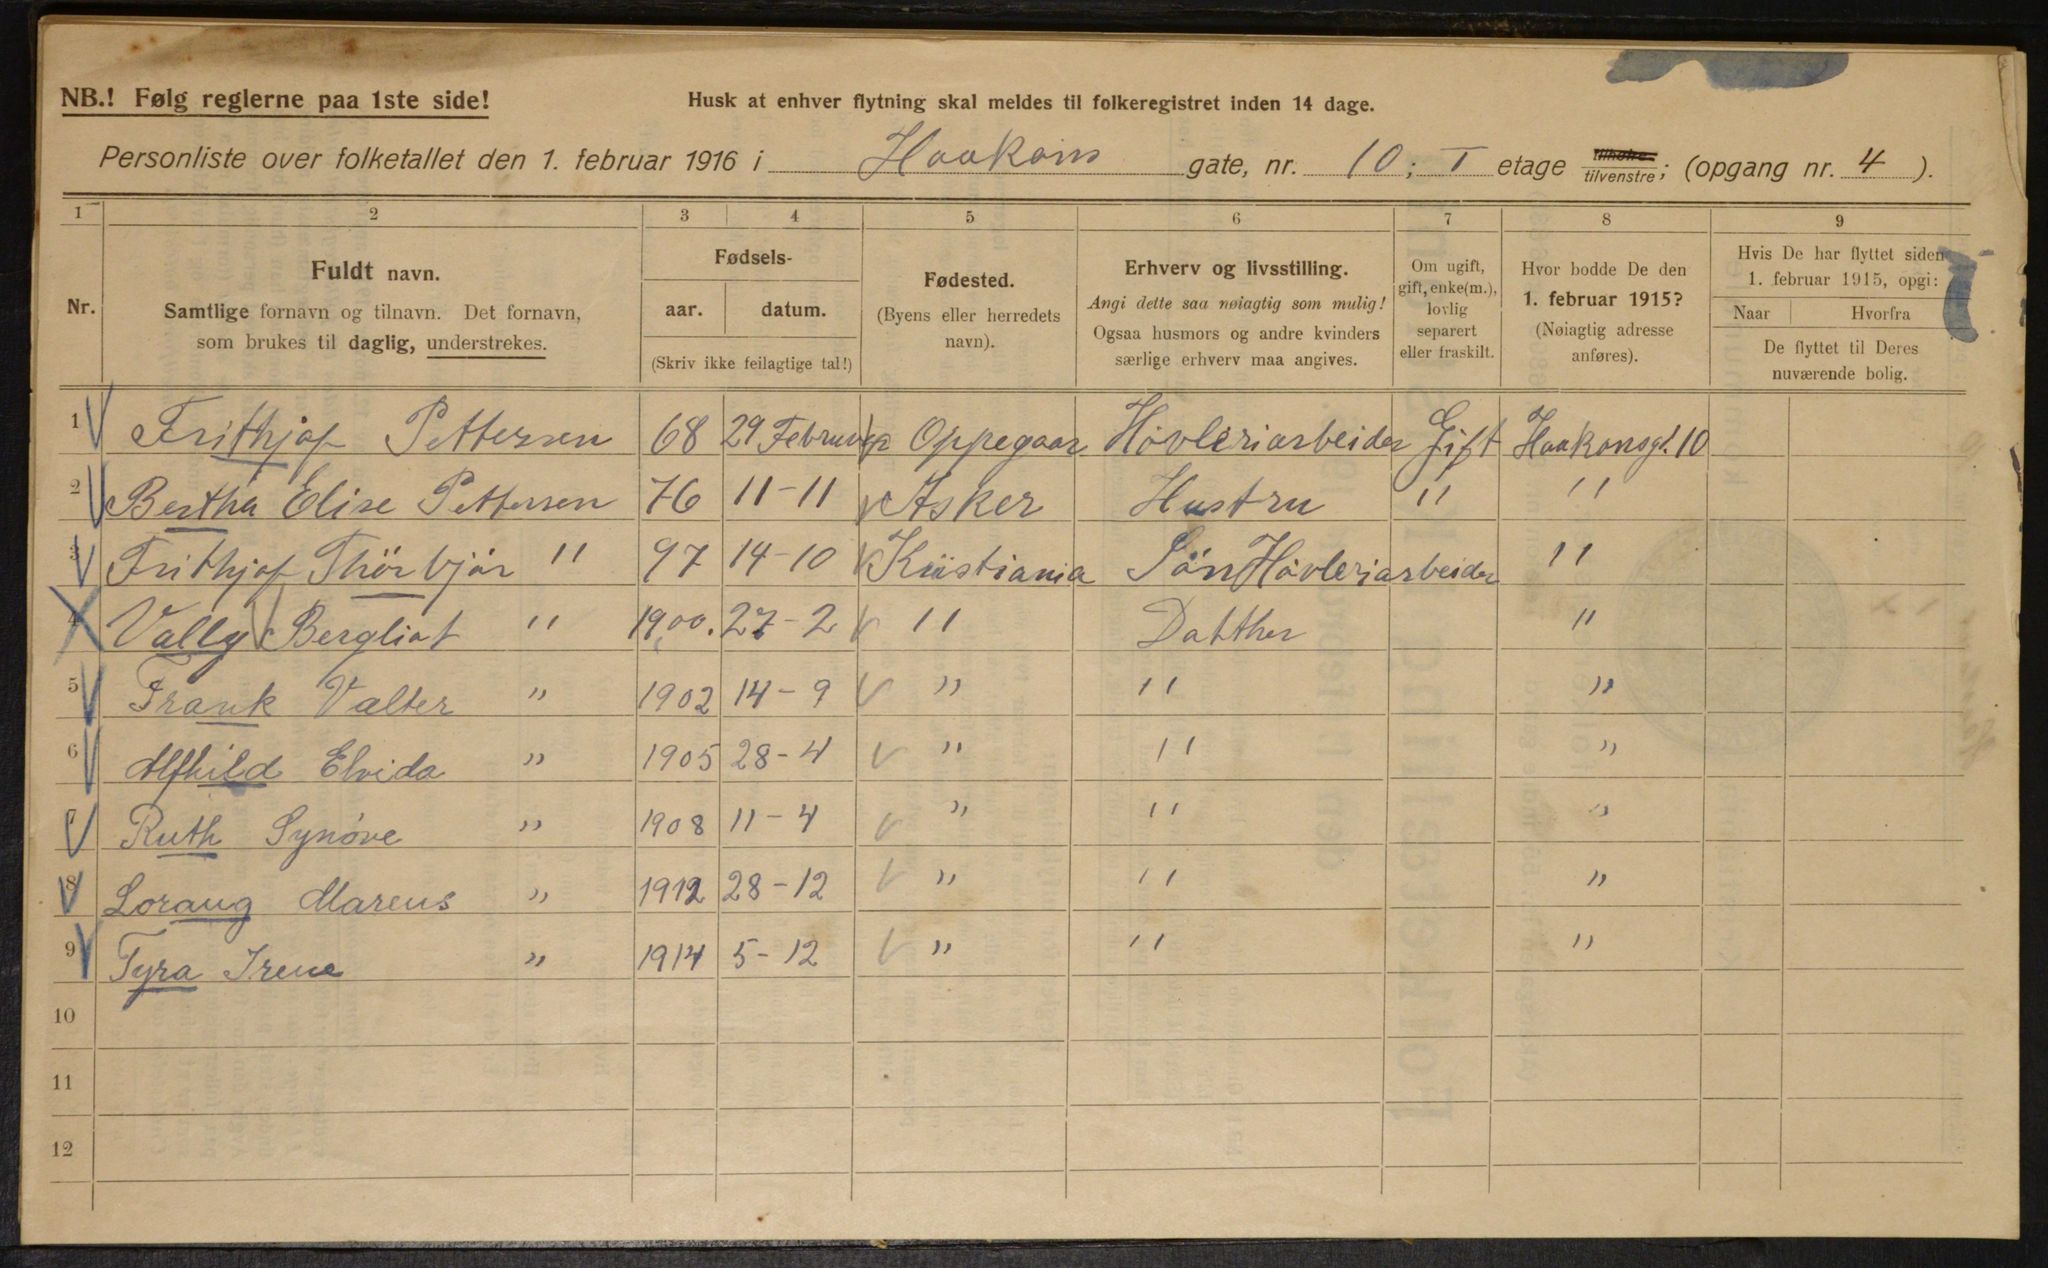 NB.! Følg reglerne paa 1ste side!
Husk at enhver flytning skal meldes til folkeregistret inden 14 dage.
Personliste over folketallet den 1. februar 1916 i Haakons gate, nr. 10; I etage tilhøire tilvenstre; (opgang nr. 4).
1 2 3 4 5 6 7 8 9
Nr.
Fuldt navn.
Samtlige fornavn og tilnavn. Det fornavn,
som brukes til daglig, understrekes.
Fødsels-
aar. datum.
(Skriv ikke feilagtige tal!)
Fødested.
(Byens eller herredets
navn).
Erhverv og livsstilling.
Angi dette saa nøiagtig som mulig!
Ogsaa husmors og andre kvinders
særlige erhverv maa angives.
Om ugift,
gift, enke(m.),
lovlig
separert
eller fraskilt.
Hvor bodde De den
1. februar 1915?
(Nøiagtig adresse
anføres).
Hvis De har flyttet siden
1. februar 1915, opgi:
Naar Hvorfra
De flyttet til Deres
nuværende bolig.
1 Frithjof Pettersen 68 29 Februar Oppegaar Høvleriarbeider Gift Haakonsgt. 10
2 Bertha Elise Pettersen 76 11-11 Asker Hustru " "
3 Frithjof Thorbjør " 97 14-10 Kristiania Søn Høvleriarbeider "
4 Vally Bergliot " 1900. 27-2 " Datther "
5 Frank Valter " 1902 14-9 " " "
6 Alfhild Elvida " 1905 28-4 " " "
7 Ruth Synøve " 1908 11-4 " " "
8 Lorang Marens " 1912 28-12 " " "
9 Tyra Irene " 1914 5-12 " " "
10
11
12